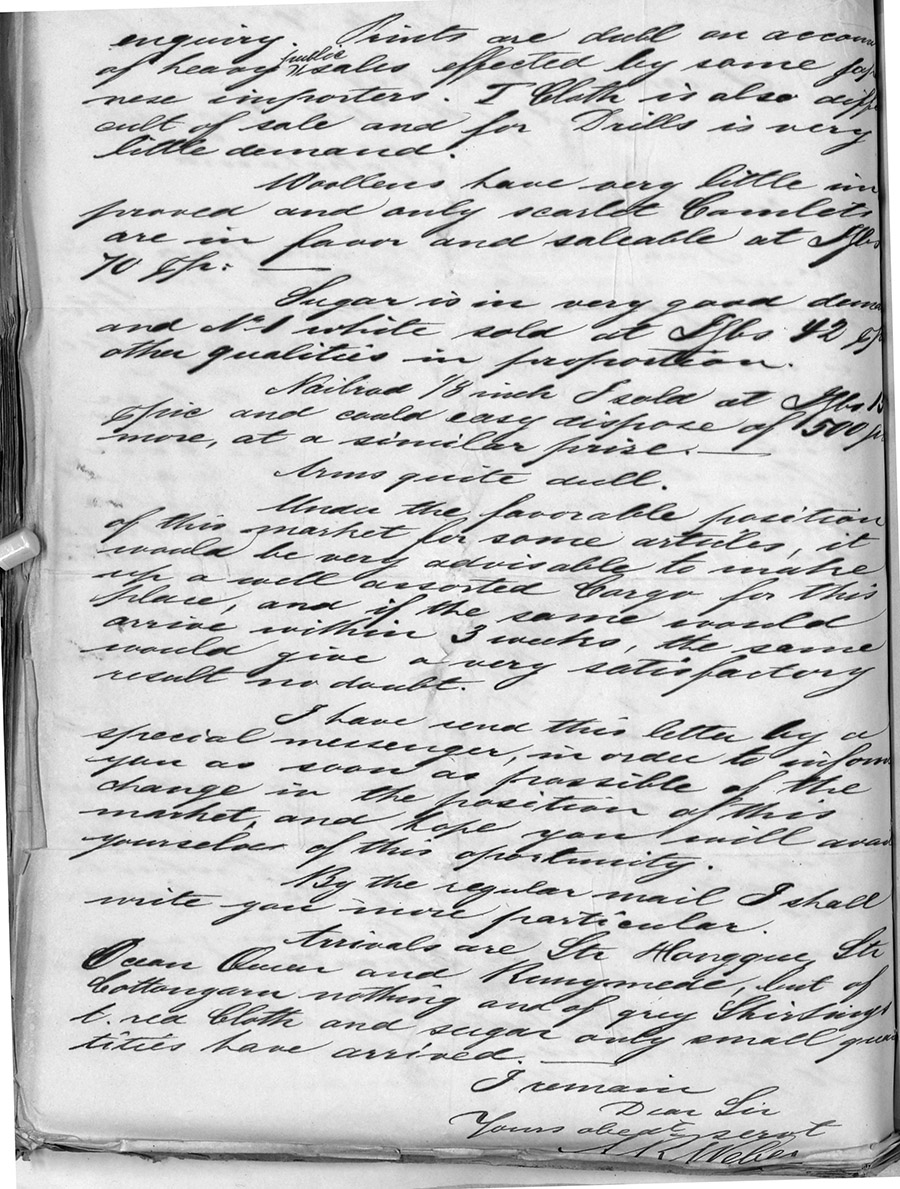 enquiry. Prints are dull on accoun
of heavy public sales effected by some Jap
nese importers. T Cloth is also diffi
cult of sale and for Drills is very
little demand.
Woollens have very little im
proved and only scarlet Camlets
are in favor and saleable at Jbs
70 pr: —
Sugar is in very good dema
and No 1 white sold at Jbs 42 p
other qualities in proportion.
Nailrod 1/8 inch I sold at Jbs 15
pic and could easy dispose of 1500 pi
more, at a similar prize. —
Arms quite dull.
Under the favorable position
of this market for some articles, it
would be very advisable to make
up a well assorted Cargo for this
place, and if the same would
arrive within 3 weeks, the same
would give a very satisfactory
result no doubt.
I have send this letter by a
special messenger, in order to inform
you as soon as possible of the
change in the position of this
market, and hope you will avai
yourselves of this oportunity.
By the regular mail I shall
write you more particular.
Arrivals are Str Hangque, Str
Ocean Queen and Runymede, but of
Cottonyarn nothing and of grey Shirtings
t. red Cloth and sugar only small quan
tities have arrived. —
I remain
Dear Sir
Yours obedt servt
A R Weber